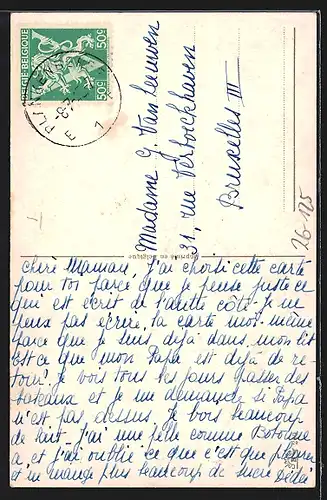 BELGIQUE BELGIË
50c 50c
Madame G. Van Leeuwen
31, rue Verboeckhaven
Bruxelles III
26-125
T
Chère Maman, j'ai choisi cette carte
pour toi parce que je pense juste ce
qui est écrit de l'autre côté. Je ne
peux pas écrire la carte moi-même
parce que je suis déjà dans mon lit
Est-ce que mon Papa est déjà de re-
tour? Je vois tous les jours passer des
bateaux et je me demande si Papa
n'est pas dessus. Je bois beaucoup
de lait - j'ai une pelle comme
a, et j'ai oublié ce que c'est que pleurer
et ne mange plus beaucoup de sucre Dédé